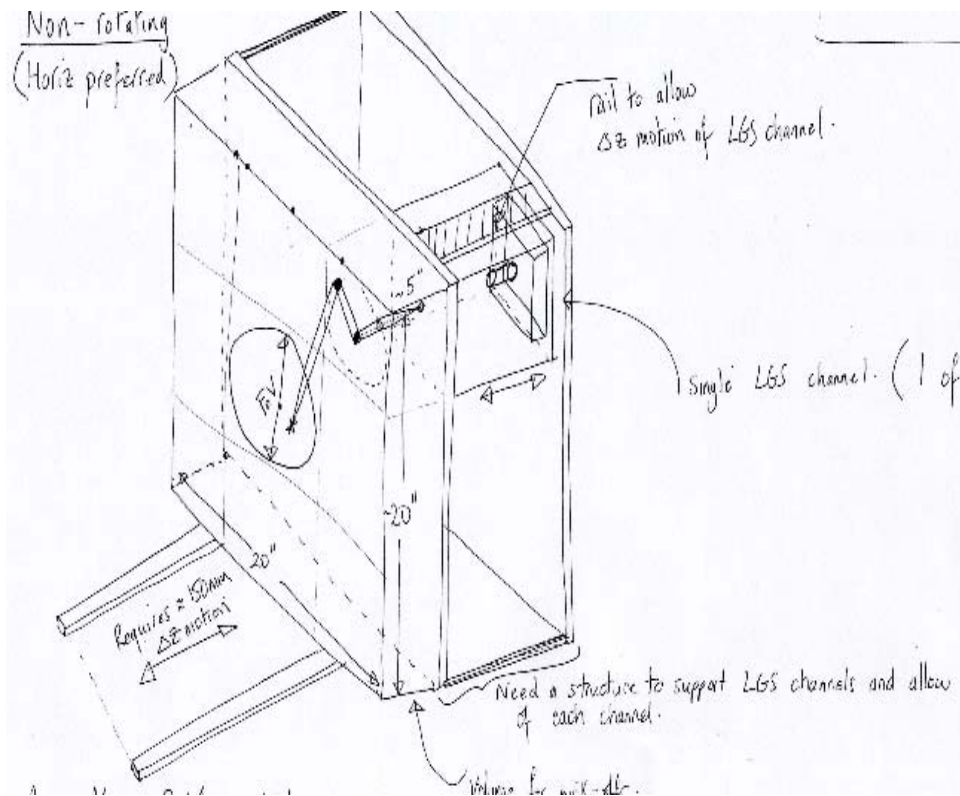 Non-rotating
(Horiz preferred)
rail to allow
Δz motion of LGS channel.
~5"
FoV
single LGS channel. (1 of
~20"
20"
Requires ≈ 150mm
Δz motion
Need a structure to support LGS channels and allow
of each channel.
Volume for pick-offs.